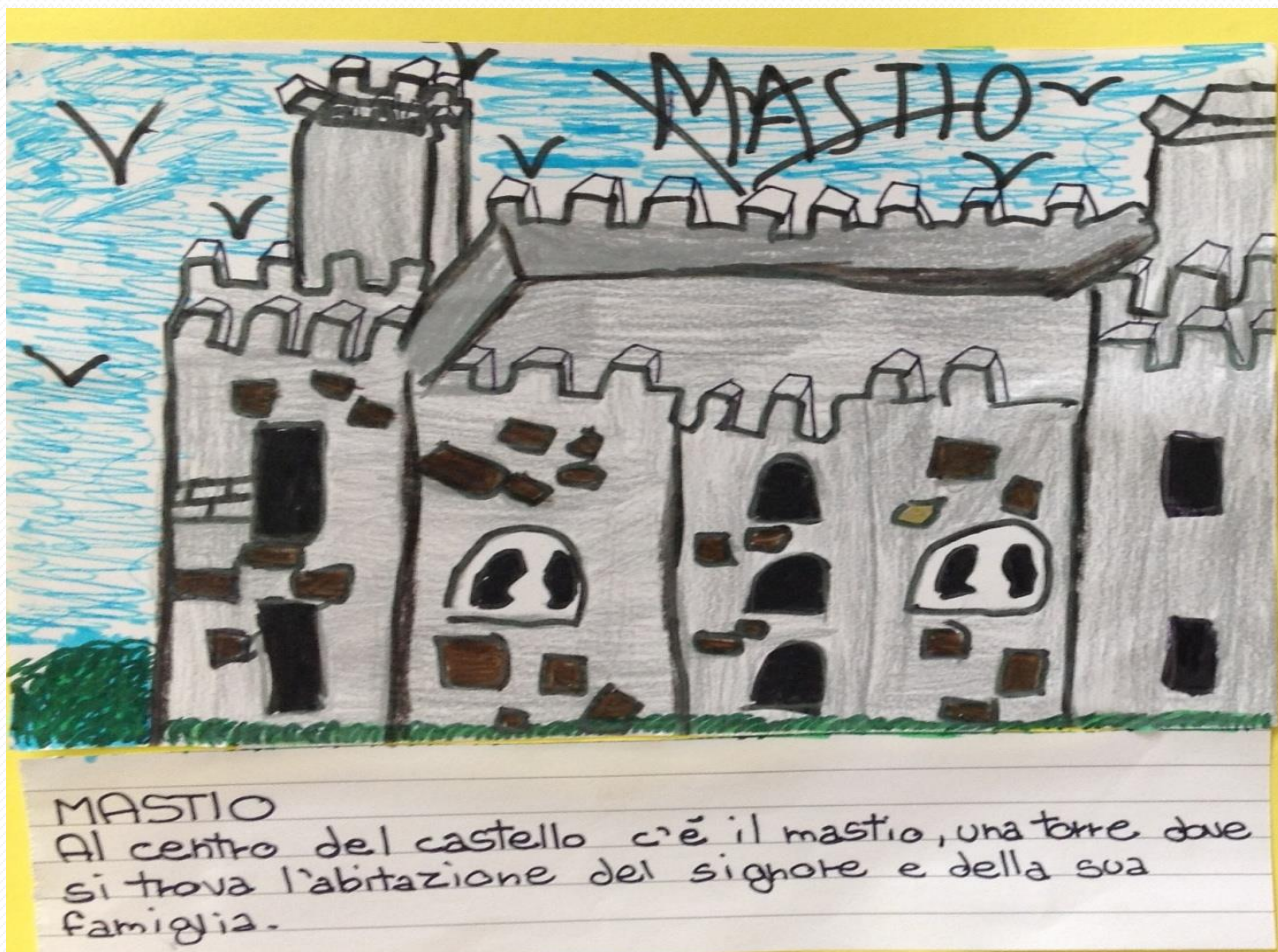 MASTIO
MASTIO
Al centro del castello c'é il mastio, una torre dove
si trova l'abitazione del signore e della sua
famiglia.